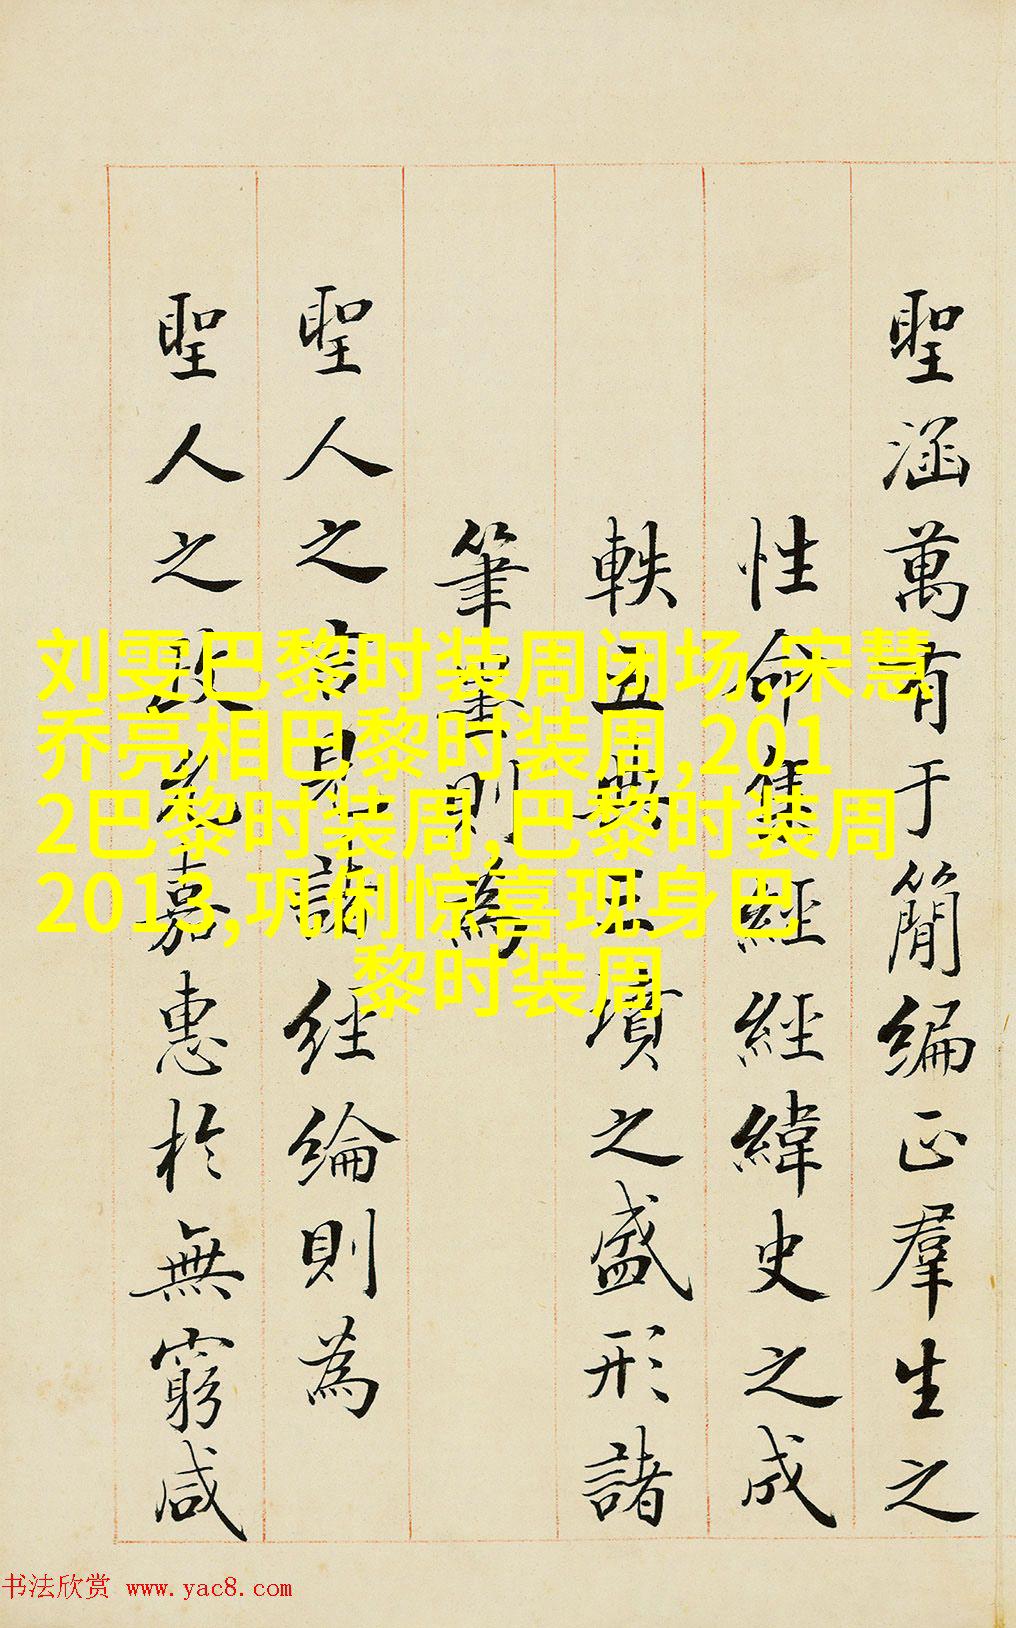 聖涵萬有于簡編正羣生之
性命集經經緯史之成
軼五典三墳之盛形諸
筆墨則為
聖人之言見諸經綸則為
聖人之政嘉惠於無窮咸
刘雯巴黎时装周闭场,宋慧
乔亮相巴黎时装周,201
2巴黎时装周,巴黎时装周
2013,巩俐惊喜现身巴
黎时装周
书法欣赏 www.yac8.com